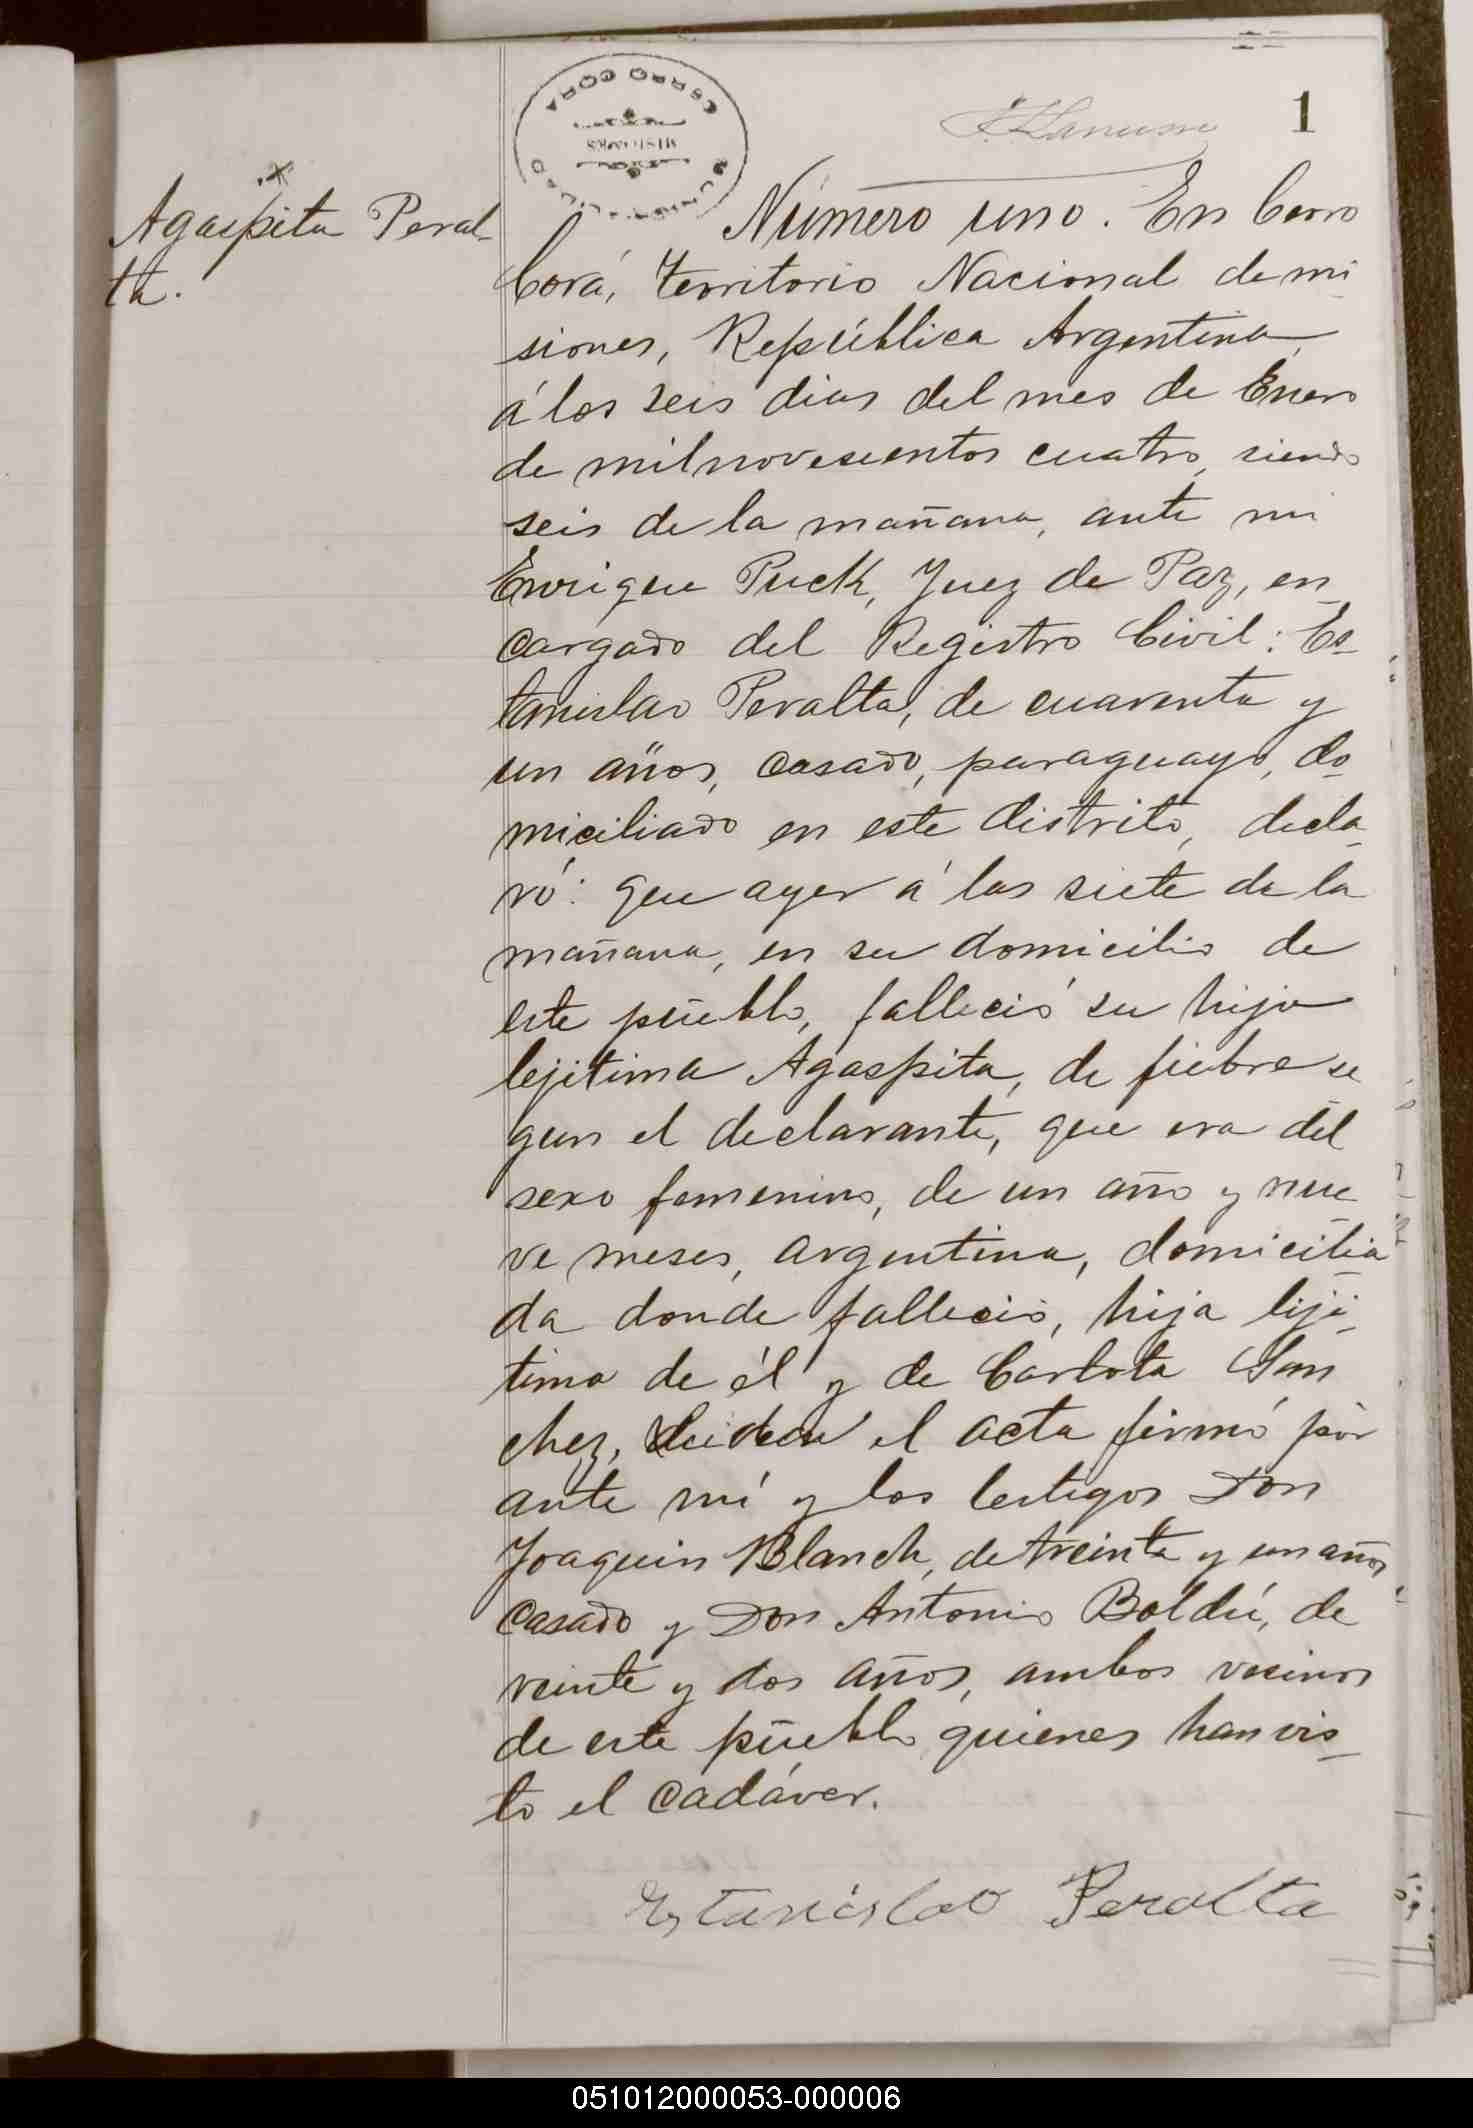 CERRO CORÁ
MISIONES
1
Agaspita Peral-
ta.
Número uno. En Cerro
Corá, Territorio Nacional de mi
siones, República Argentina,
á los seis dias del mes de Enero
de milnovescientos cuatro, siendo
seis de la mañana, ante mi
Enrique Puck, Juez de Paz, en
cargado del Registro Civil: Es-
tanislao Peralta, de cuarenta y
un años, casado, paraguayo, do
miciliado en este distrito, decla-
ró: que ayer á las siete de la
mañana, en su domicilio de
este pueblo, falleció su hija
lejitima Agaspita, de fiebre se
gun el declarante, que era del
sexo femenino, de un año y nue
ve meses, argentina, domicilia
da donde falleció, hija leji-
tima de él y de Carlota San
chez, Leida el acta firmó por
ante mí y los testigos Don
Joaquin Blanch, de treinta y un años
casado y Don Antonio Boldú, de
veinte y dos años, ambos vecinos
de este pueblo quienes han vis-
to el cadáver.
Estanislao Peralta
051012000053-000006